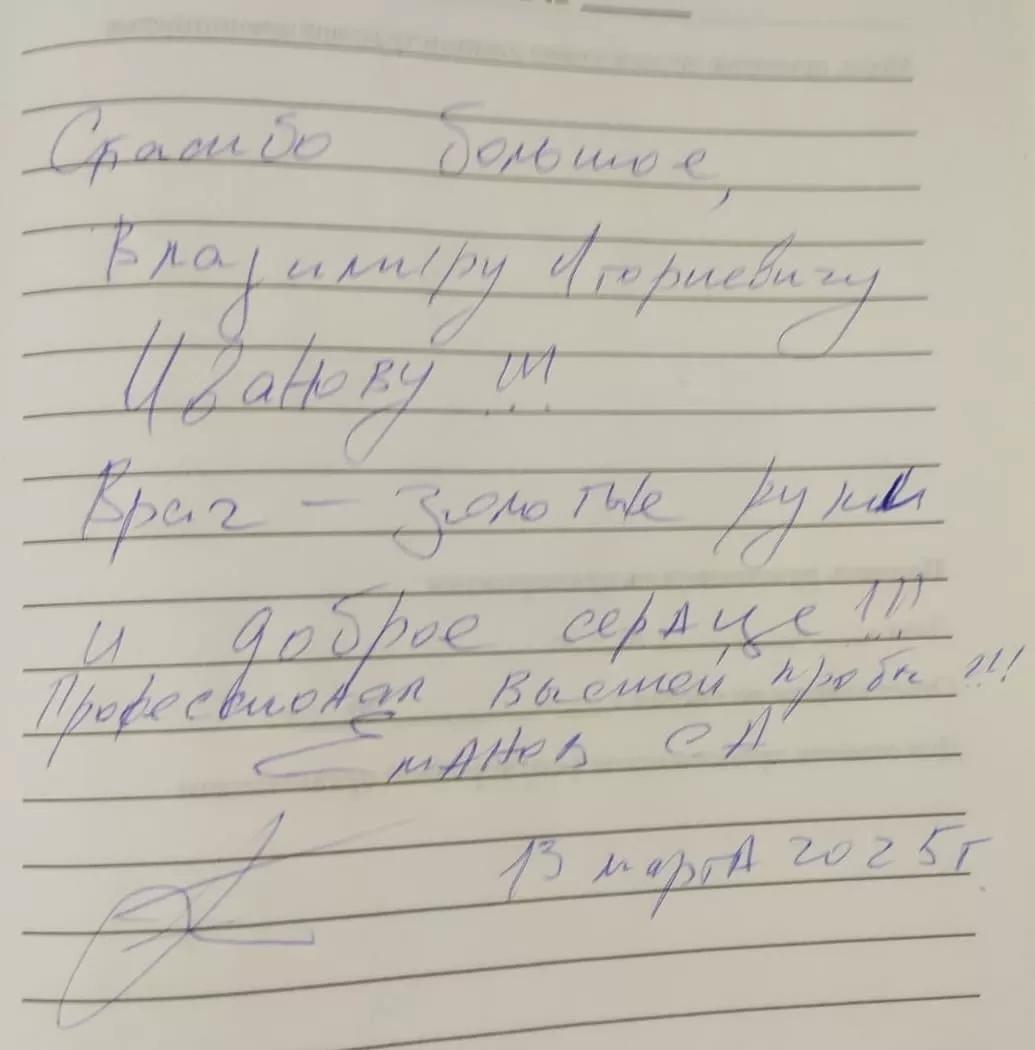 Спасибо большое,
Владимиру Игориевичу
Иванову !!!
Врач – золотые руки
и доброе сердце !!!
Профессионал высшей пробы !!!
Еманов СА
13 марта 2025г.